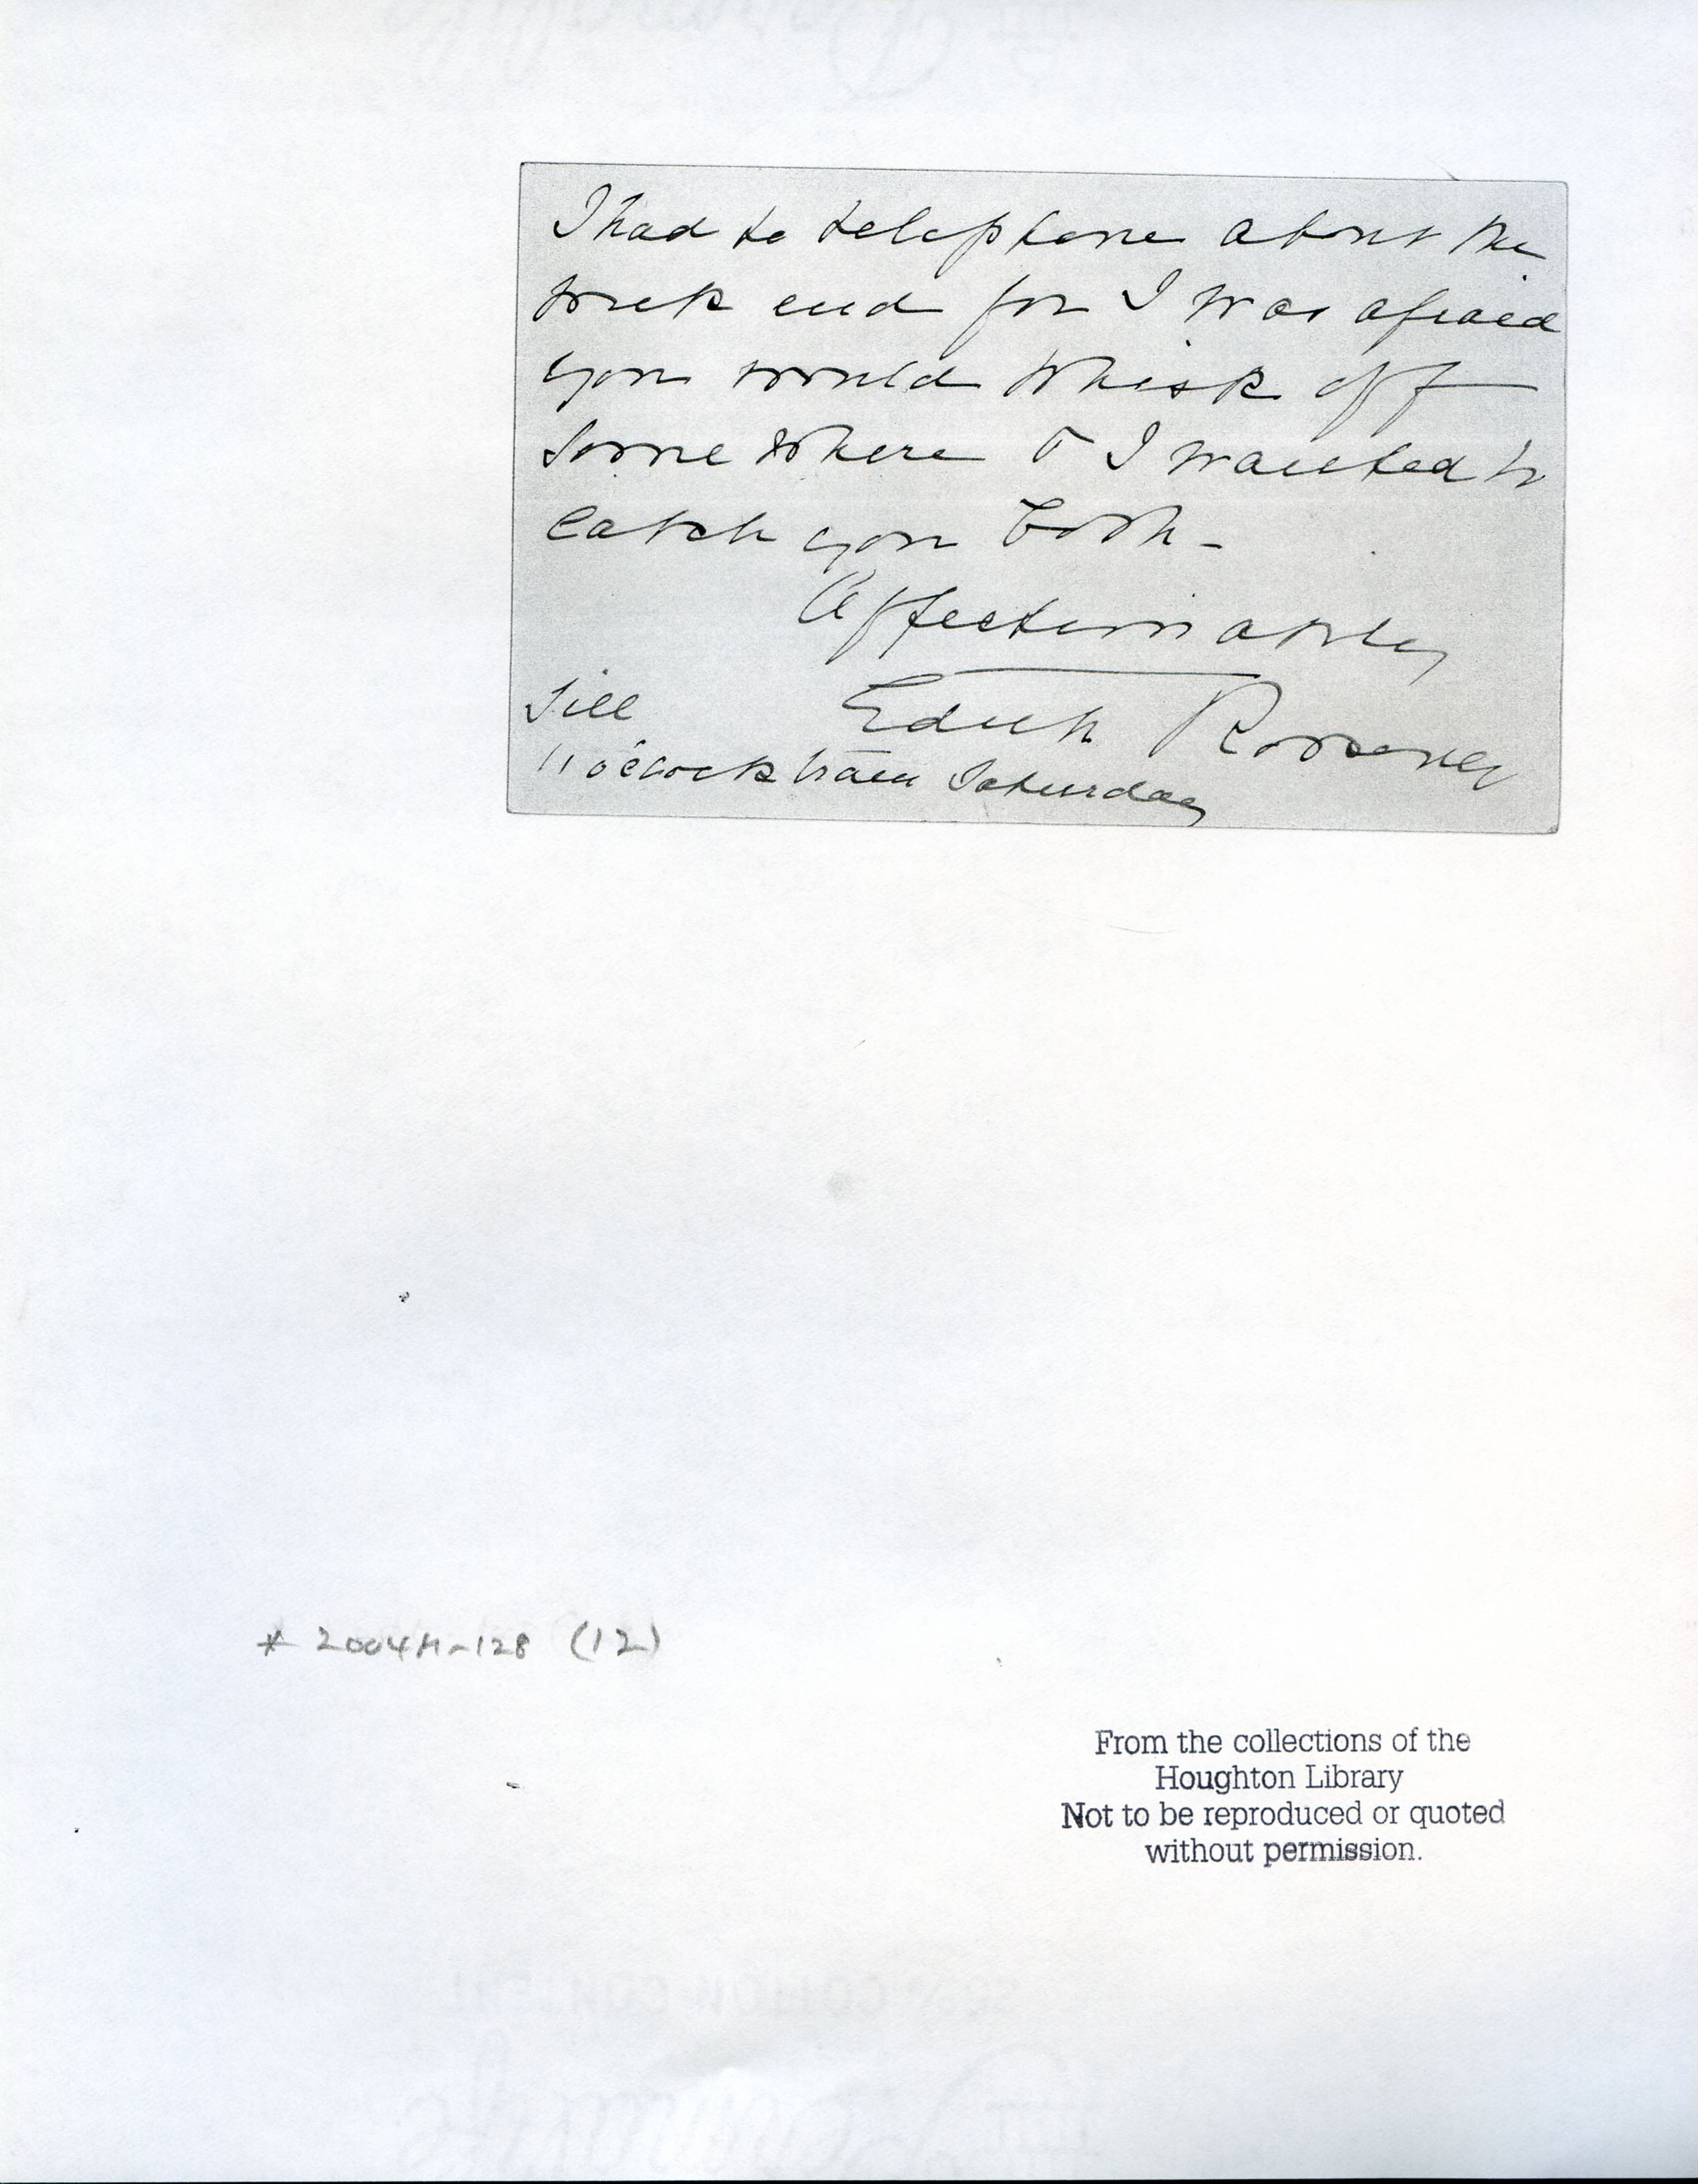 I had to telephone about the
week end for I was afraid
you would whisk off
somewhere & I wanted to
catch you both -
Affectionately
Edith Roosevelt
Till
11 o'clock train Saturday
* 2004M-128 (12)
From the collections of the
Houghton Library
Not to be reproduced or quoted
without permission.